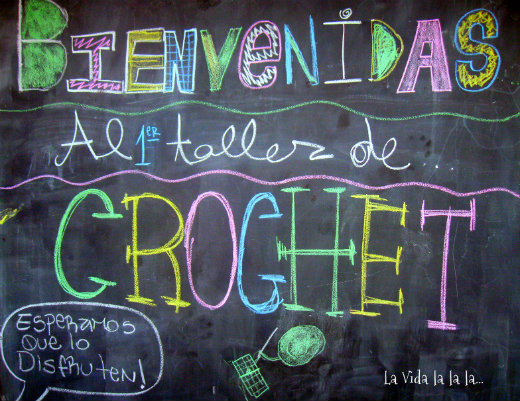 BIENVENIDAS
Al 1er taller de ...
CROCHET
ESPERAMOS
QUE lO
DISfRUTEN!
La Vida la la la...